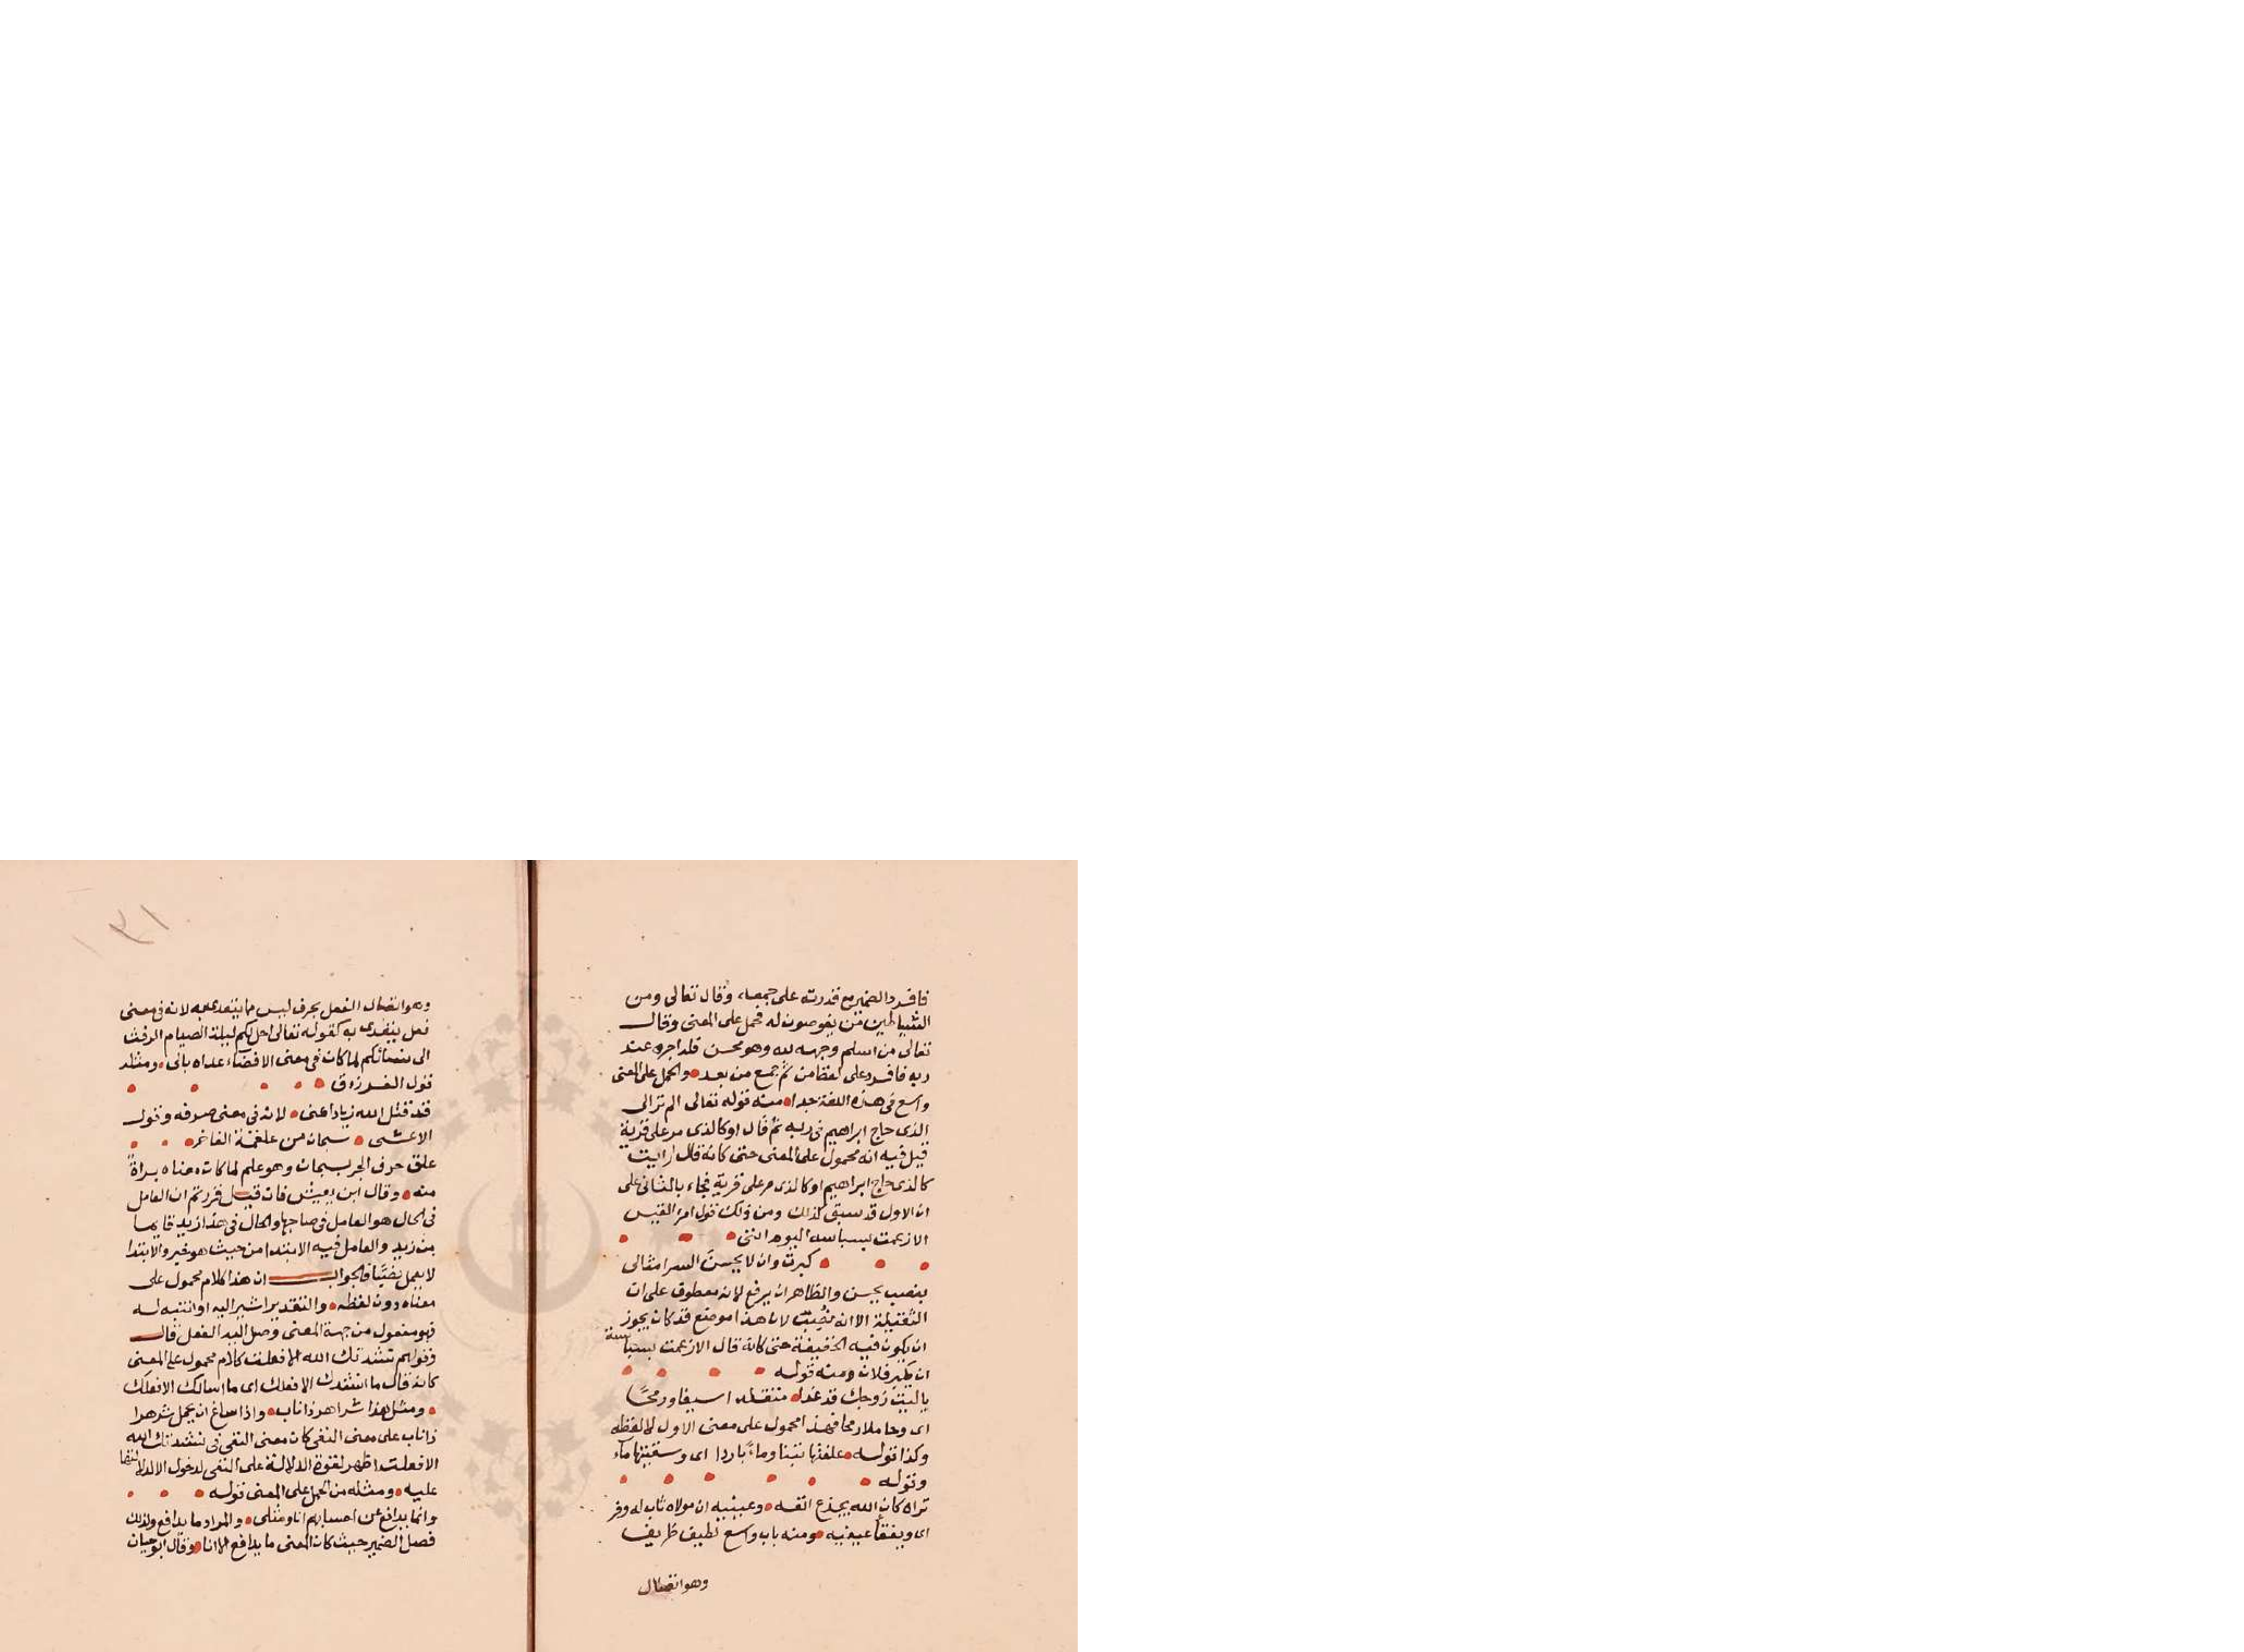 فافرد الضمير مع قدرته على جمعه، وقال تعالى ومن
الشياطين من يغوصون له فحمل على المعنى وقال
تعالى من اسلم وجهه لله وهو محسن فله اجره عند
ربه فافرد على لفظ من ثم جمع من بعد والحمل على المعنى
واسع في هذه اللغة جدا منه قوله تعالى الم تر الى
الذى حاج ابراهيم في ربه ثم قال او كالذى مر على قرية
قيل فيه انه محمول على المعنى حتى كانه قال ارايت
كالذى حاج ابراهيم او كالذى مر على قرية فجاء بالثانى على
ان الاول قد سبق كذلك ومن ذلك قول امرئ القيس
الا زعمت بسباسه اليوم اننى
كبرت وان لا يحسنَ السر امثالى
بنصب يحسن والظاهر ان يرفع لانه معطوف على ان
الثقيلة الا انه نصب لان هذا موضع قد كان يجوز
ان يكون فيه الخفيفة حتى كانه قال الا زعمت بسباسة
ان يكبر فلان ومنه قوله
ياليت زوجك قد غدا متقلدا سيفا ورمحًا
اى وحاملا رمحا فهذا محمول على معنى الاول لا لفظه
وكذا قوله علفتها تبنا وماءً باردا اى وسقيتها ماء
وقوله
تراه كان الله يجدع انفه وعينيه ان مولاه ثاب له وفر
اى ويفقأ عينيه ومنه باب واسع لطيف ظريف
وهو اتصال
١٣١
وهو اتصال الفعل بحرف ليس مما يتعدى به لانه في معنى
فعل يتعدى به كقوله تعالى احل لكم ليلة الصيام الرفث
الى نسائكم لما كان في معنى الافضاء عداه بالى ومثله
قول الفرزدق
قد قتل الله زيادا عنى لانه في معنى صرفه وقول
الاعشى سبحان من علقمة الفاخر
علق حرف الجر بسبحان وهو علم لما كان معناه براةً
منه وقال ابن يعيش فان قيل قررتم ان العامل
في الحال هو العامل في صاحبها والحال في هذا زيد قايما
من زيد والعامل فيه الابتدا من حيث هو خبر والابتدا
لا يعمل نصبًا فالجواب ان هذا كلام محمول على
معناه دون لفظه والتقدير اشير اليه او انتبه له
فهو مفعول من جهة المعنى وصل اليه الفعل قال
وقولهم نشدتك الله الا فعلت كلام محمول على المعنى
كانه قال ما انشدك الا فعلك اى ما اسالك الا فعلك
ومثل هذا شر اهر ذا ناب واذا ساغ ان يحمل شر اهر
ذا ناب على معنى النفى كان معنى النفى في نشدتك الله
الا فعلت اظهر لقوة الدلالة على النفى لدخول الا لدلالتها
عليه ومثله من الحمل على المعنى قوله
وانما يدافع عن احسابهم انا او مثلى والمراد ما يدافع ولذلك
فصل الضمير حيث كان المعنى ما يدافع الا انا وقال ابو حيان